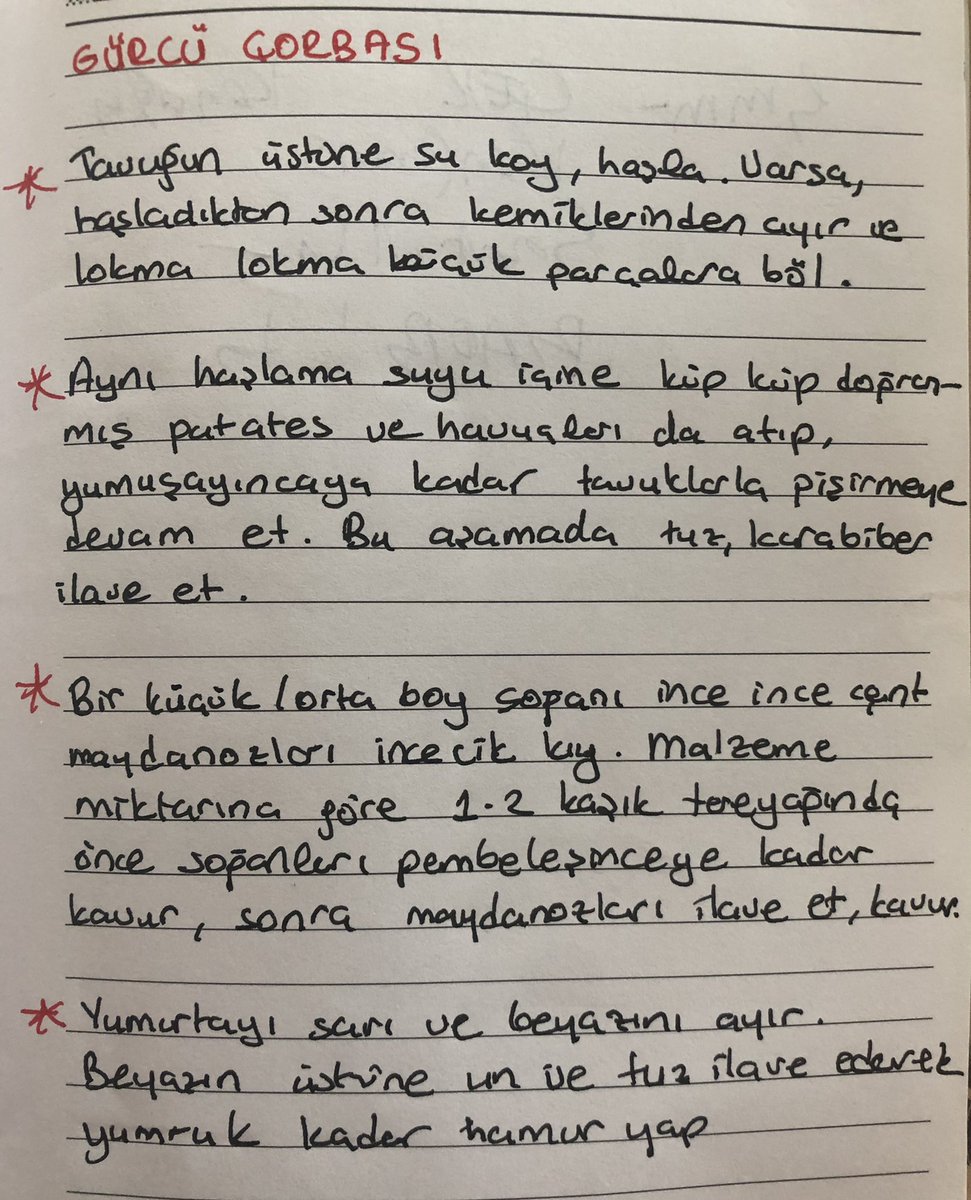 GÜRCÜ ÇORBASI
* Tavuğun üstüne su koy, haşla. Varsa,
haşladıktan sonra kemiklerinden ayır ve
lokma lokma küçük parçalara böl.
* Aynı haşlama suyu içine küp küp doğran-
mış patates ve havuçları da atıp,
yumuşayıncaya kadar tavuklarla pişirmeye
devam et. Bu aşamada tuz, karabiber
ilave et.
* Bir küçük/orta boy soğanı ince ince çent
maydanozları incecik kıy. Malzeme
miktarına göre 1-2 kaşık tereyağında
önce soğanları pembeleşinceye kadar
kavur, sonra maydanozları ilave et, kavur.
* Yumurtayı sarı ve beyazını ayır.
Beyazın üstüne un ve tuz ilave ederek
yumruk kadar hamur yap